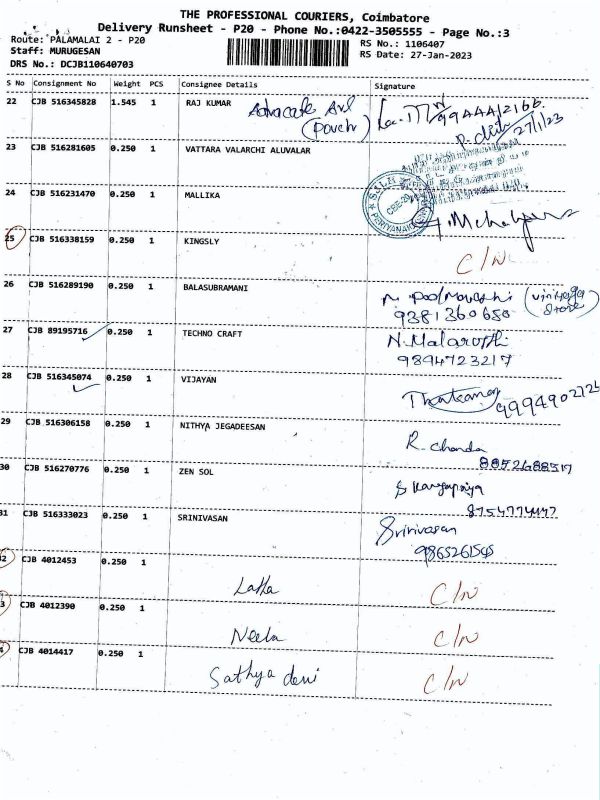 THE PROFESSIONAL COURIERS, Coimbatore
Delivery Runsheet - P20 - Phone No.:0422-3505555 - Page No.:3
Route: PALAMALAI 2 - P20
Staff: MURUGESAN
DRS No.: DCJB110640703
RS No.: 1106407
RS Date: 27-Jan-2023
S No Consignment No Weight PCS Consignee Details Signature
22 CJB 516345828 1.545 1 RAJ KUMAR Advocate
(Pouch)
27/1/23
23 CJB 516281605 0.250 1 VATTARA VALARCHI ALUVALAR
24 CJB 516231470 0.250 1 MALLIKA
25 CJB 516338159 0.250 1 KINGSLY C/N
26 CJB 516289190 0.250 1 BALASUBRAMANI
9381360650
Store
27 CJB 89195716 0.250 1 TECHNO CRAFT
9894723217
28 CJB 516345074 0.250 1 VIJAYAN
29 CJB 516306158 0.250 1 NITHYA JEGADEESAN R. Chandra
30 CJB 516270776 0.250 1 ZEN SOL
31 CJB 516333023 0.250 1 SRINIVASAN Srinivasan
CJB 4012453 0.250 1 C/N
CJB 4012390 0.250 1 Neela C/N
CJB 4014417 0.250 1 Sathya devi C/N